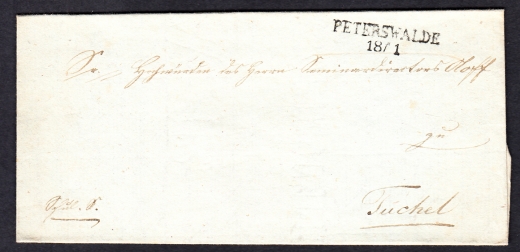 PETERSWALDE
18/1
Sr. Hochwürden des Herrn Seminardirectors
zu
Tuchel
Schul. S.